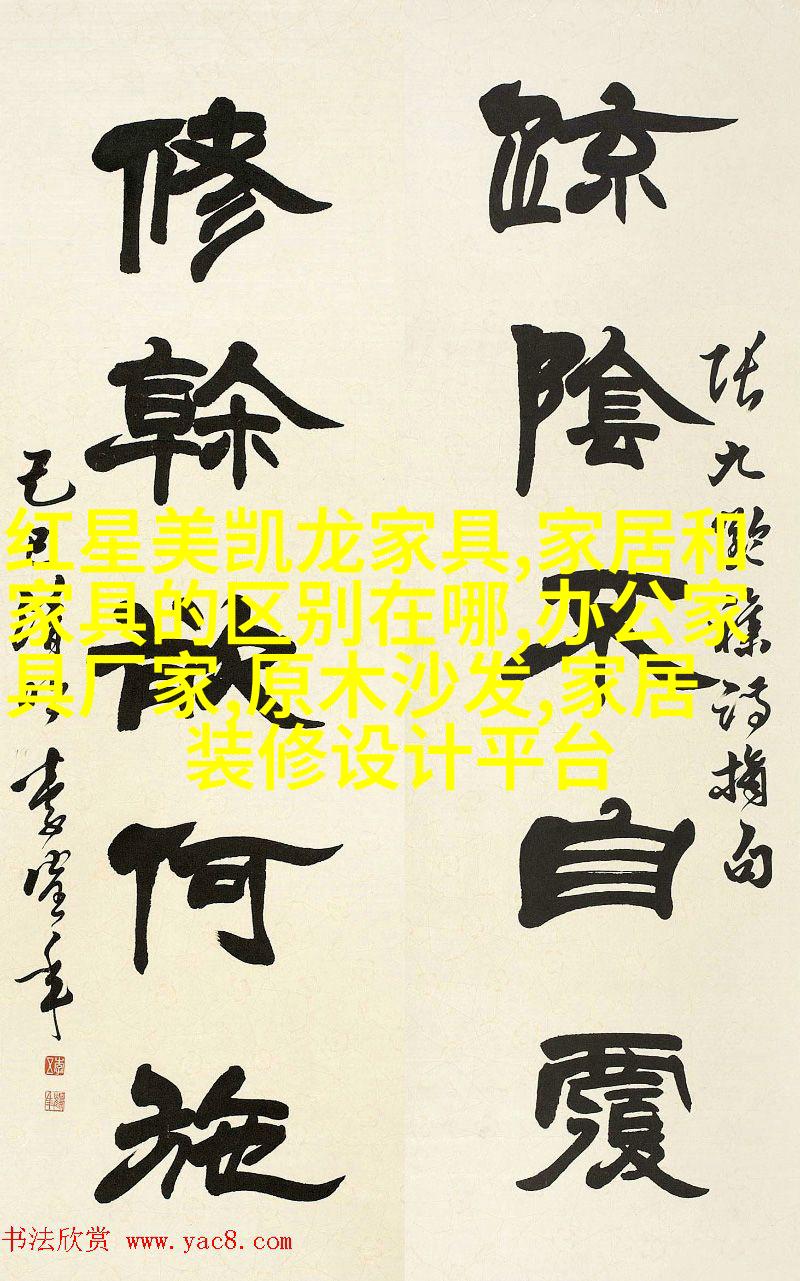 疎陰不自覆
張九齡詩摘句
修榦欲何施
己丑
红星美凯龙家具,家居和
家具的区别在哪,办公家
具厂家,原木沙发,家居
装修设计平台
书法欣赏 www.yac8.com